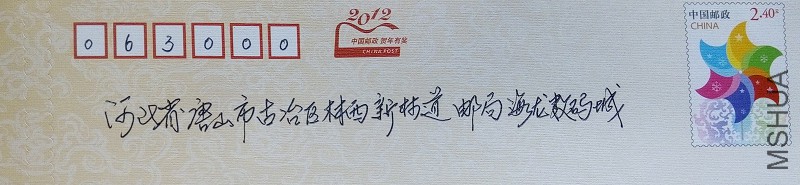 063000
2012
中国邮政 贺年有奖
CHINA POST
中国邮政
CHINA
2.40元
河北省唐山市古冶区林西新林道邮局海龙数码城
MSHUA